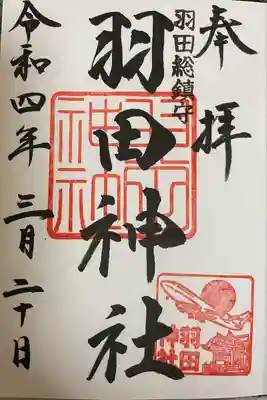 奉拝
羽田総鎮守
羽田神社
令和四年三月二十日
羽田神社
羽田
神社